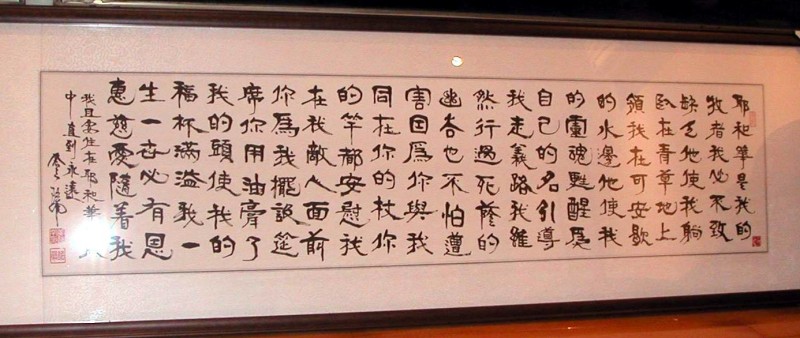 耶和華是我的
牧者我必不致
缺乏他使我躺
臥在青草地上
領我在可安歇
的水邊他使我
的靈魂甦醒為
自己的名引導
我走義路我雖
然行過死蔭的
幽谷也不怕遭
害因為你與我
同在你的杖你
的竿都安慰我
在我敵人面前
你為我擺設筵
席你用油膏了
我的頭使我的
福杯滿溢我一
生一世必有恩
惠慈愛隨著我
我且要住在耶和華
中直到永遠